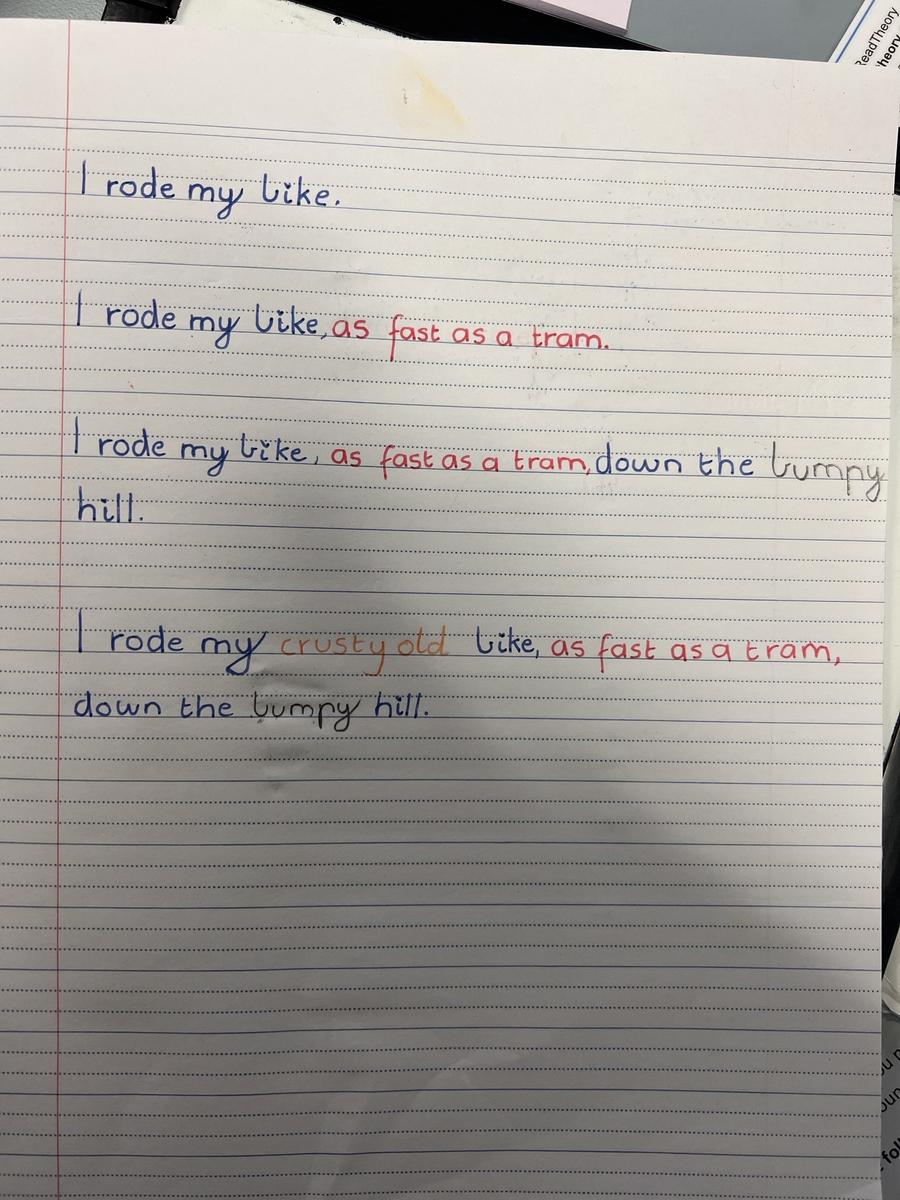 I rode my bike.
I rode my bike, as fast as a tram.
I rode my bike, as fast as a tram, down the bumpy
hill.
I rode my crusty old bike, as fast as a tram,
down the bumpy hill.
ReadTheory